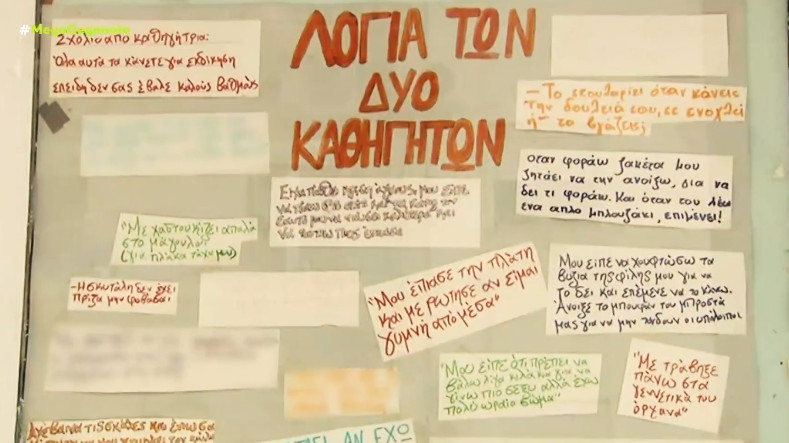 #MegaGegonota
Σχόλιο από καθηγήτρια:
Όλα αυτά τα κάνετε για εκδίκηση
επειδή δεν σας έβαλε καλούς βαθμούς
ΛΟΓΙΑ ΤΩΝ
ΔΥΟ
ΚΑΘΗΓΗΤΩΝ
- Το σκουλαρίκι όταν κάνεις
την δουλειά σου, σε ενοχλεί
ή το βγάζεις;
όταν φοράω ζακέτα μου
ζητάει να την ανοίξω, για να
δει τι φοράω. Και όταν του λέω
ένα απλό μπλουζάκι, επιμένει!
"Με χαστουκίζει απαλά
στο μάγουλο"
(για πλάκα τάχα μου)
-Η σκυτάλη δεν έχει
πρίζα μην φοβάσαι
"Μου έπιασε την πλάτη
και με ρώτησε αν είμαι
γυμνή από μέσα"
Μου είπε να χουφτώσω τα
βυζιά της φίλης μου για να
το δει και επέμενε να το κάνω.
Άνοιξε το μπουφάν του μπροστά
μας για να μην βλέπουν οι υπόλοιποι
"Μου είπε ότι πρέπει να
βάλω λίγα κιλάκια για να
γίνω πιο σέξυ αλλά έχω
πολύ ωραίο σώμα"
"Με τράβηξε
πάνω στα
γεννετικά του
όργανα"
ΑΝ ΕΧΩ